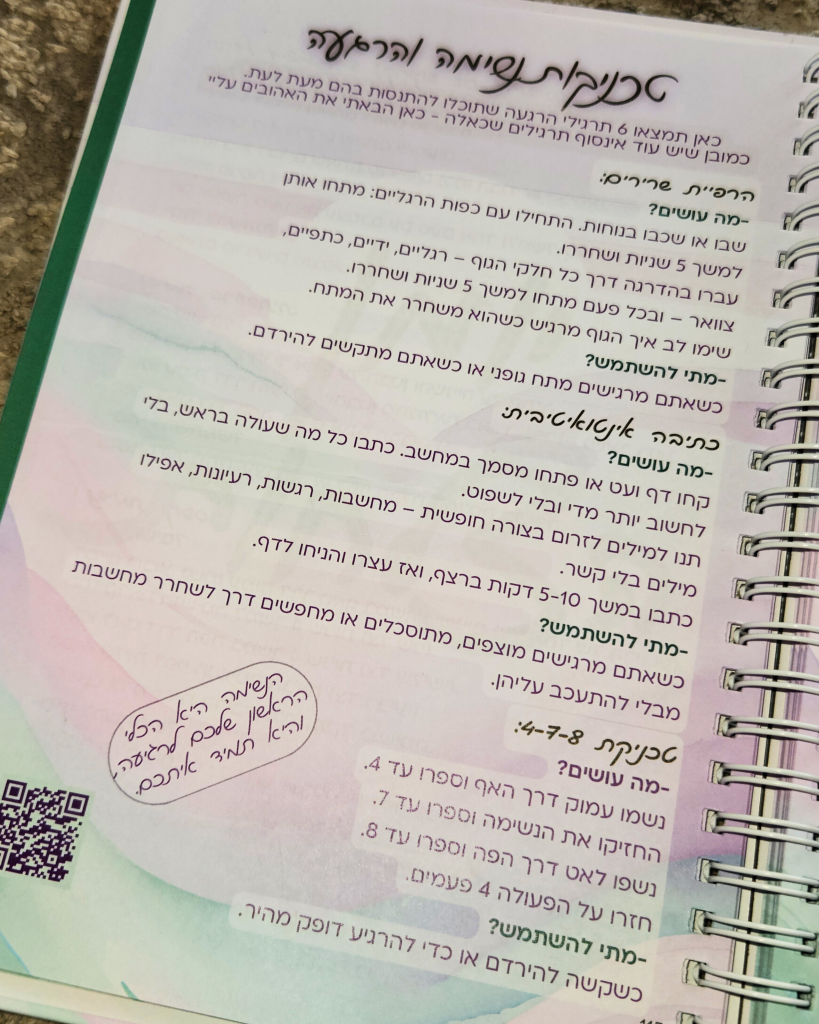 טכניקות נשימה והרגעה
כאן תמצאו 6 תרגילי הרגעה שתוכלו להתנסות בהם מעת לעת.
כמובן שיש עוד אינסוף תרגילים שכאלה - כאן הבאתי את האהובים עליי
הרפיית שרירים:
-מה עושים?
שבו או שכבו בנוחות. התחילו עם כפות הרגליים: מתחו אותן
למשך 5 שניות ושחררו.
עברו בהדרגה דרך כל חלקי הגוף – רגליים, ידיים, כתפיים,
צוואר – ובכל פעם מתחו למשך 5 שניות ושחררו.
שימו לב איך הגוף מרגיש כשהוא משחרר את המתח.
-מתי להשתמש?
כשאתם מרגישים מתח גופני או כשאתם מתקשים להירדם.
כתיבה אינטואיטיבית:
-מה עושים?
קחו דף ועט או פתחו מסמך במחשב. כתבו כל מה שעולה בראש, בלי
לחשוב יותר מדי ובלי לשפוט.
תנו למילים לזרום בצורה חופשית – מחשבות, רגשות, רעיונות, אפילו
מילים בלי קשר.
כתבו במשך 5-10 דקות ברצף, ואז עצרו והניחו לדף.
-מתי להשתמש?
כשאתם מרגישים מוצפים, מתוסכלים או מחפשים דרך לשחרר מחשבות
מבלי להתעכב עליהן.
טכניקת 4-7-8:
-מה עושים?
נשמו עמוק דרך האף וספרו עד 4.
החזיקו את הנשימה וספרו עד 7.
נשפו לאט דרך הפה וספרו עד 8.
חזרו על הפעולה 4 פעמים.
-מתי להשתמש?
כשקשה להירדם או כדי להרגיע דופק מהיר.
הנשימה היא הכלי
הראשון שלכם לרגיעה,
והיא תמיד איתכם.